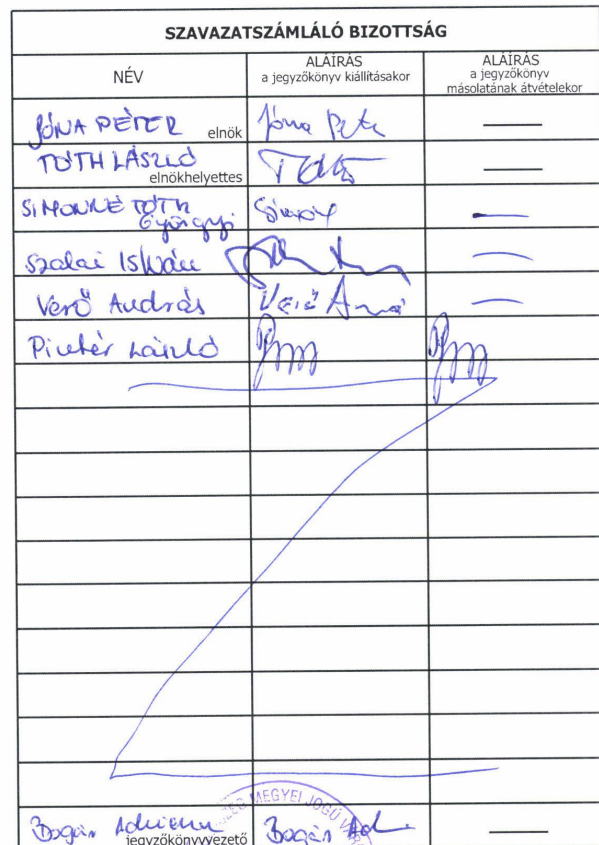 SZAVAZATSZÁMLÁLÓ BIZOTTSÁG
NÉV
ALÁÍRÁS
a jegyzőkönyv kiállításakor
ALÁÍRÁS
a jegyzőkönyv
másolatának átvételekor
JÓNA PÉTER elnök Jóna Péte —
TÓTH LÁSZLÓ
elnökhelyettes Tóth —
SIMONNÉ TÓTH
Györgyi —
Szalai István —
Verő András Verő —
Pintér László
MEGYEI JOGÚ
Bogár Adrienn
jegyzőkönyvvezető Bogár Ad —